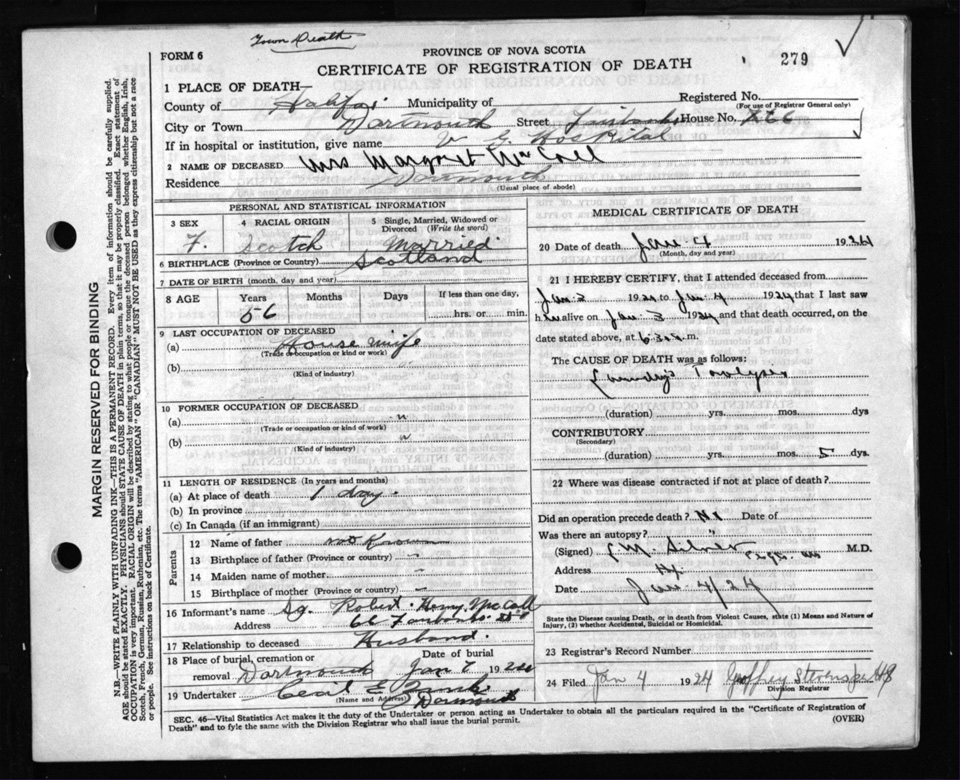 Town Death
FORM 6
PROVINCE OF NOVA SCOTIA
CERTIFICATE OF REGISTRATION OF DEATH
279
1 PLACE OF DEATH—
Registered No.
(For use of Registrar General only)
County of Halifax Municipality of
City or Town Dartmouth Street House No.
If in hospital or institution, give name V. G. Hospital
2 NAME OF DECEASED Mrs Margaret McCall
Residence Dartmouth
(Usual place of abode)
PERSONAL AND STATISTICAL INFORMATION
3 SEX 4 RACIAL ORIGIN 5 Single, Married, Widowed or Divorced (Write the word)
F. Scotch Married
6 BIRTHPLACE (Province or Country) Scotland
7 DATE OF BIRTH (month, day and year)
8 AGE Years Months Days If less than one day,
56 hrs. or min.
9 LAST OCCUPATION OF DECEASED
(a) House wife
(Trade or occupation or kind or work)
(b)
(Kind of industry)
10 FORMER OCCUPATION OF DECEASED
(a) "
(Trade or occupation or kind of work)
(b) "
(Kind of industry)
11 LENGTH OF RESIDENCE (In years and months)
(a) At place of death 1 day.
(b) In province
(c) In Canada (if an immigrant)
Parents
12 Name of father not Known
13 Birthplace of father (Province or country) "
14 Maiden name of mother "
15 Birthplace of mother (Province or country) "
16 Informant's name Sg. Robert Henry McCall
Address 66 St
17 Relationship to deceased Husband.
18 Place of burial, cremation or removal Dartmouth Date of burial Jan 7 1924
19 Undertaker Cecil E
(Name and Address) Dartmouth
MEDICAL CERTIFICATE OF DEATH
20 Date of death Jan 4 1924
(Month, day and year)
21 I HEREBY CERTIFY, that I attended deceased from
Jan 2 1924 to Jan 4 1924 that I last saw
her alive on Jan 3 1924 and that death occurred, on the
date stated above, at m.
The CAUSE OF DEATH was as follows:
Landry's Paralysis
(duration) yrs. mos. dys
CONTRIBUTORY
(Secondary)
(duration) yrs. mos. 5 dys.
22 Where was disease contracted if not at place of death?
Did an operation precede death? No Date of
Was there an autopsy? "
(Signed) M. Silver M.D.
Address Hx.
Date Jan 4/24
State the Disease causing Death, or in death from Violent Causes, state (1) Means and Nature of
Injury, (2) whether Accidental, Suicidal or Homicidal.
23 Registrar's Record Number
24 Filed Jan 4 1924 Geoffrey
Division Registrar
SEC. 46—Vital Statistics Act makes it the duty of the Undertaker or person acting as Undertaker to obtain all the particulars required in the "Certificate of Registration of
Death" and to fyle the same with the Division Registrar who shall issue the burial permit. (OVER)
MARGIN RESERVED FOR BINDING
N.B.—WRITE PLAINLY WITH UNFADING INK—THIS IS A PERMANENT RECORD. Every item of information should be carefully supplied.
AGE should be stated EXACTLY. PHYSICIANS should STATE CAUSE OF DEATH in plain terms, so that it may be properly classified. Exact statement of
OCCUPATION is very important. RACIAL ORIGIN will be described by stating to what people or tongue the deceased person belonged whether English, Irish,
Scotch, French, German, Russian, Ruthenian, etc. The terms "AMERICAN" or "CANADIAN" MUST NOT BE USED as they express citizenship but not a race
or people. See instructions on back of Certificate.